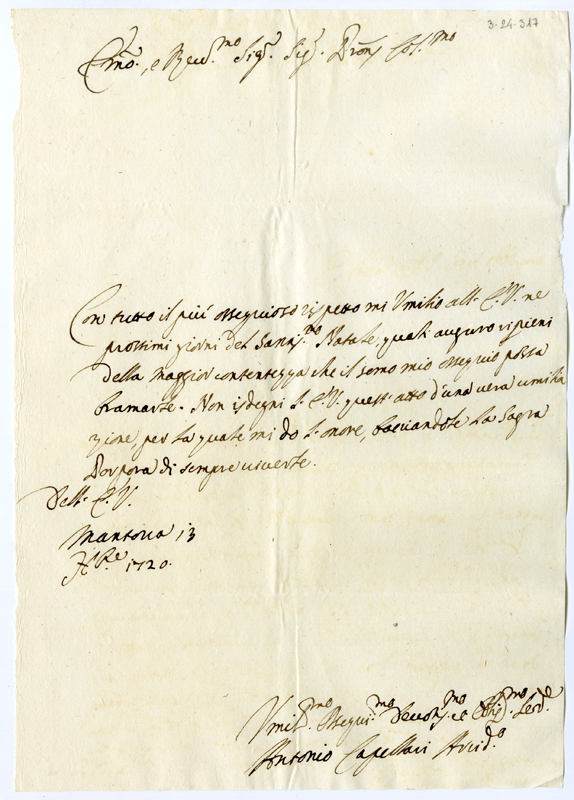 3-24-317
Emo., e Reu.mo Sig.r Sig.r Pron Col.mo
Con tutto il più ossequioso rispetto mi Umilio all' E.V. ne
prossimi giorni del Santiss.mo Natale, quali auguro ripieni
della maggior contentezza che il somo mio ossequio possa
bramarle. Non isdegni l' E.V. quest' atto d' una vera umilia
zione, per la quale mi do l' onore, bacciandole la Sagra
Porpora di sempre viverle.
Dell' E.V.
Mantova 13
Xbre 1720.
Umil.mo Ossequi.mo Devot.mo et Oblig.mo Ser.
Antonio Capellari Arcid.o